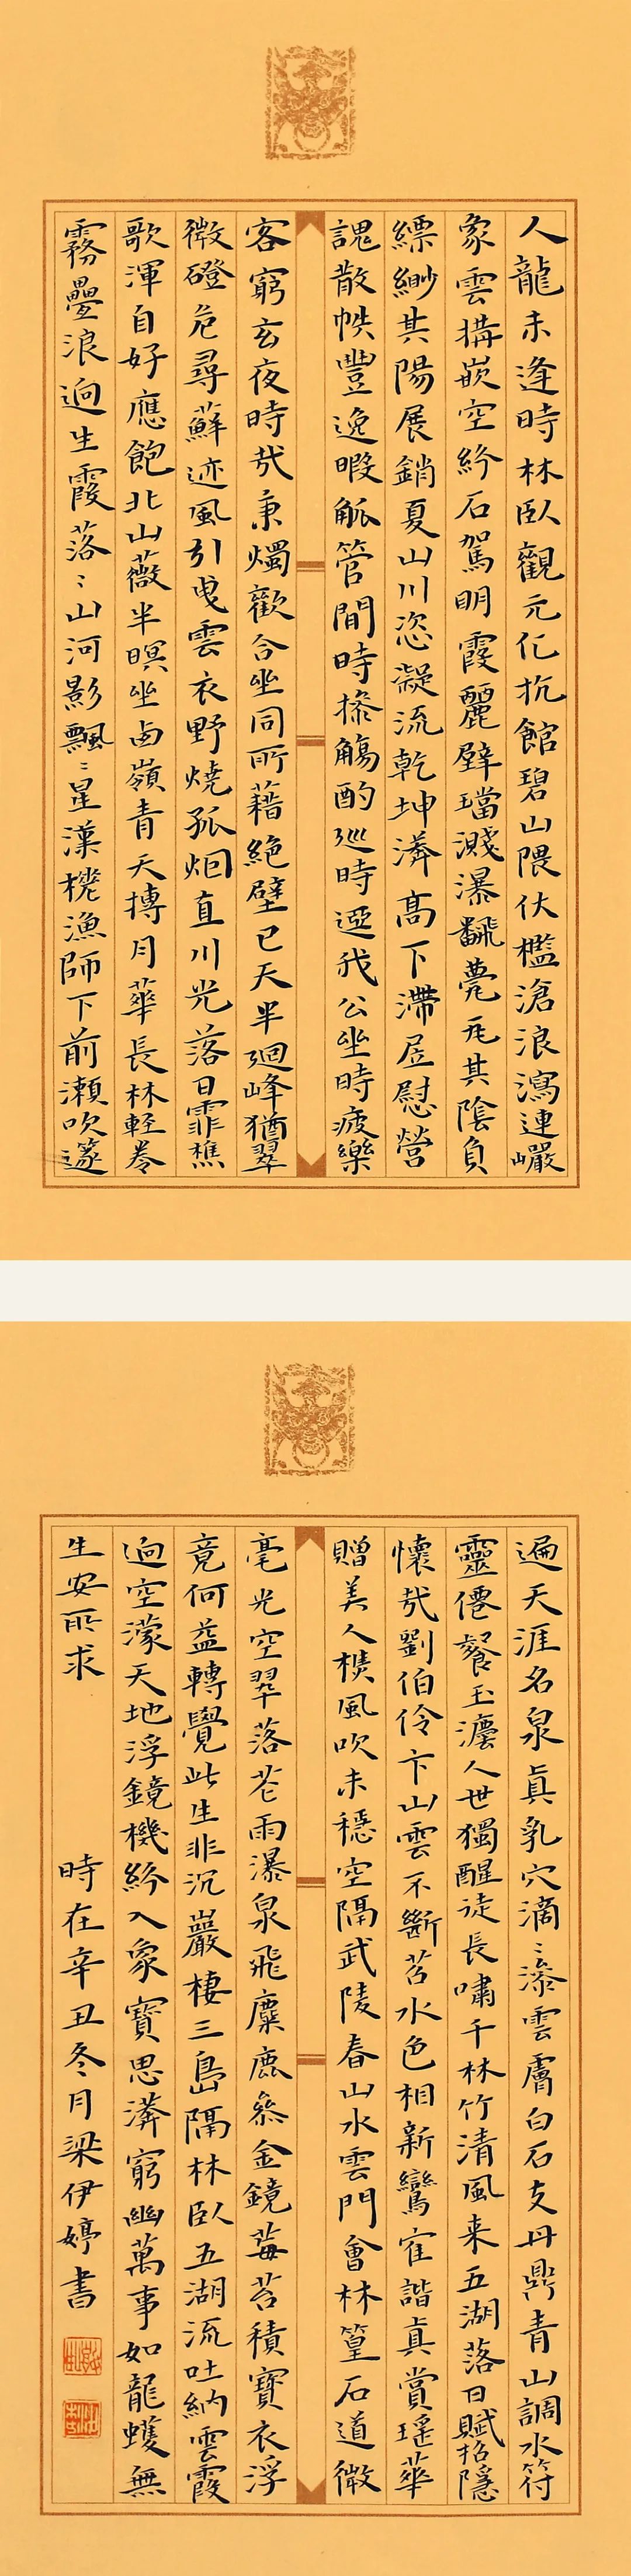 人龍未逢時林臥觀元化抗館碧山隈伏檻滄浪瀉連巘
象雲構嵌空紛石駕明霞麗璧璫濺瀑翻甍瓦其陰負
縹緲其陽展銷夏山川恣凝流乾坤漭高下滯居慰營
魄散帙豐逸暇觚管間時操觴酌巡時迓我公坐時疲樂
客窮玄夜時哉秉燭歡合坐同所藉絕壁已天半迴峰猶翠
微磴危尋蘚迹風引曳雲衣野燒孤烟直川光落日霏樵
歌渾自好應飽北山薇半暝坐西嶺青天摶月華長林輕卷
霧疊浪迥生霞落〻山河影飄〻星漢槎漁師下前瀨吹邃
遍天涯名泉真乳穴滴〻滲雲膚白石支丹鼎青山調水符
靈僊餐玉瀣人世獨醒徒長嘯千林竹清風来五湖落日賦招隱
懷哉劉伯伶卞山雲不斷苕水色相新鸞寉諧真賞瑤華
贈美人檣風吹未穩空隔武陵春山水雲門會林篁石道微
毫光空翠落花雨瀑泉飛麋鹿叅金鏡莓苔積寶衣浮
竟何益轉覺此生非沉巖棲三島隔林臥五湖流吐納雲霞
迥空濛天地浮鏡機紛入象寶思漭窮幽萬事如龍蠖無
生安所求
時在辛丑冬月梁伊婷書